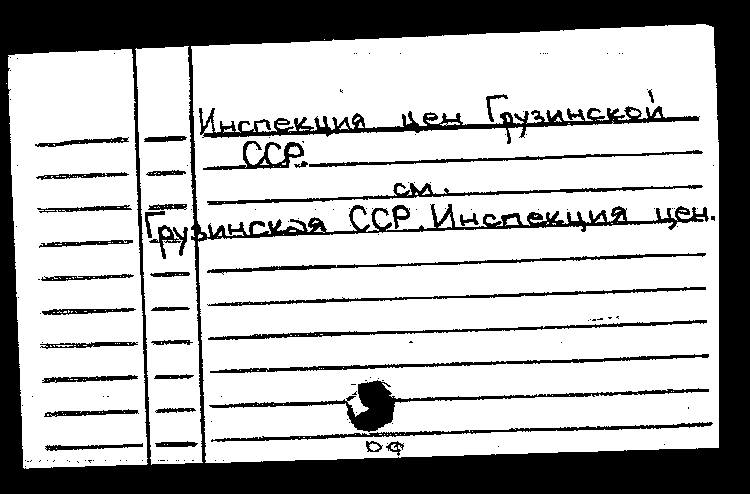 Инспекция цен Грузинской
ССР.
см.
Грузинская ССР. Инспекция цен.